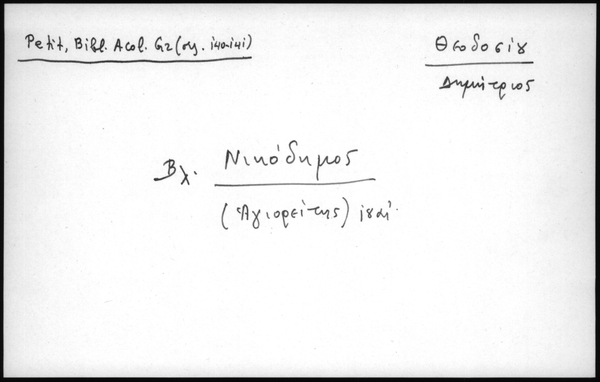 Petit, Bibl. Acol. Gr (σχ. 140-141)
Θεοδοσίου
Δημήτριος
Βλ. Νικόδημος
(Ἁγιορείτης)